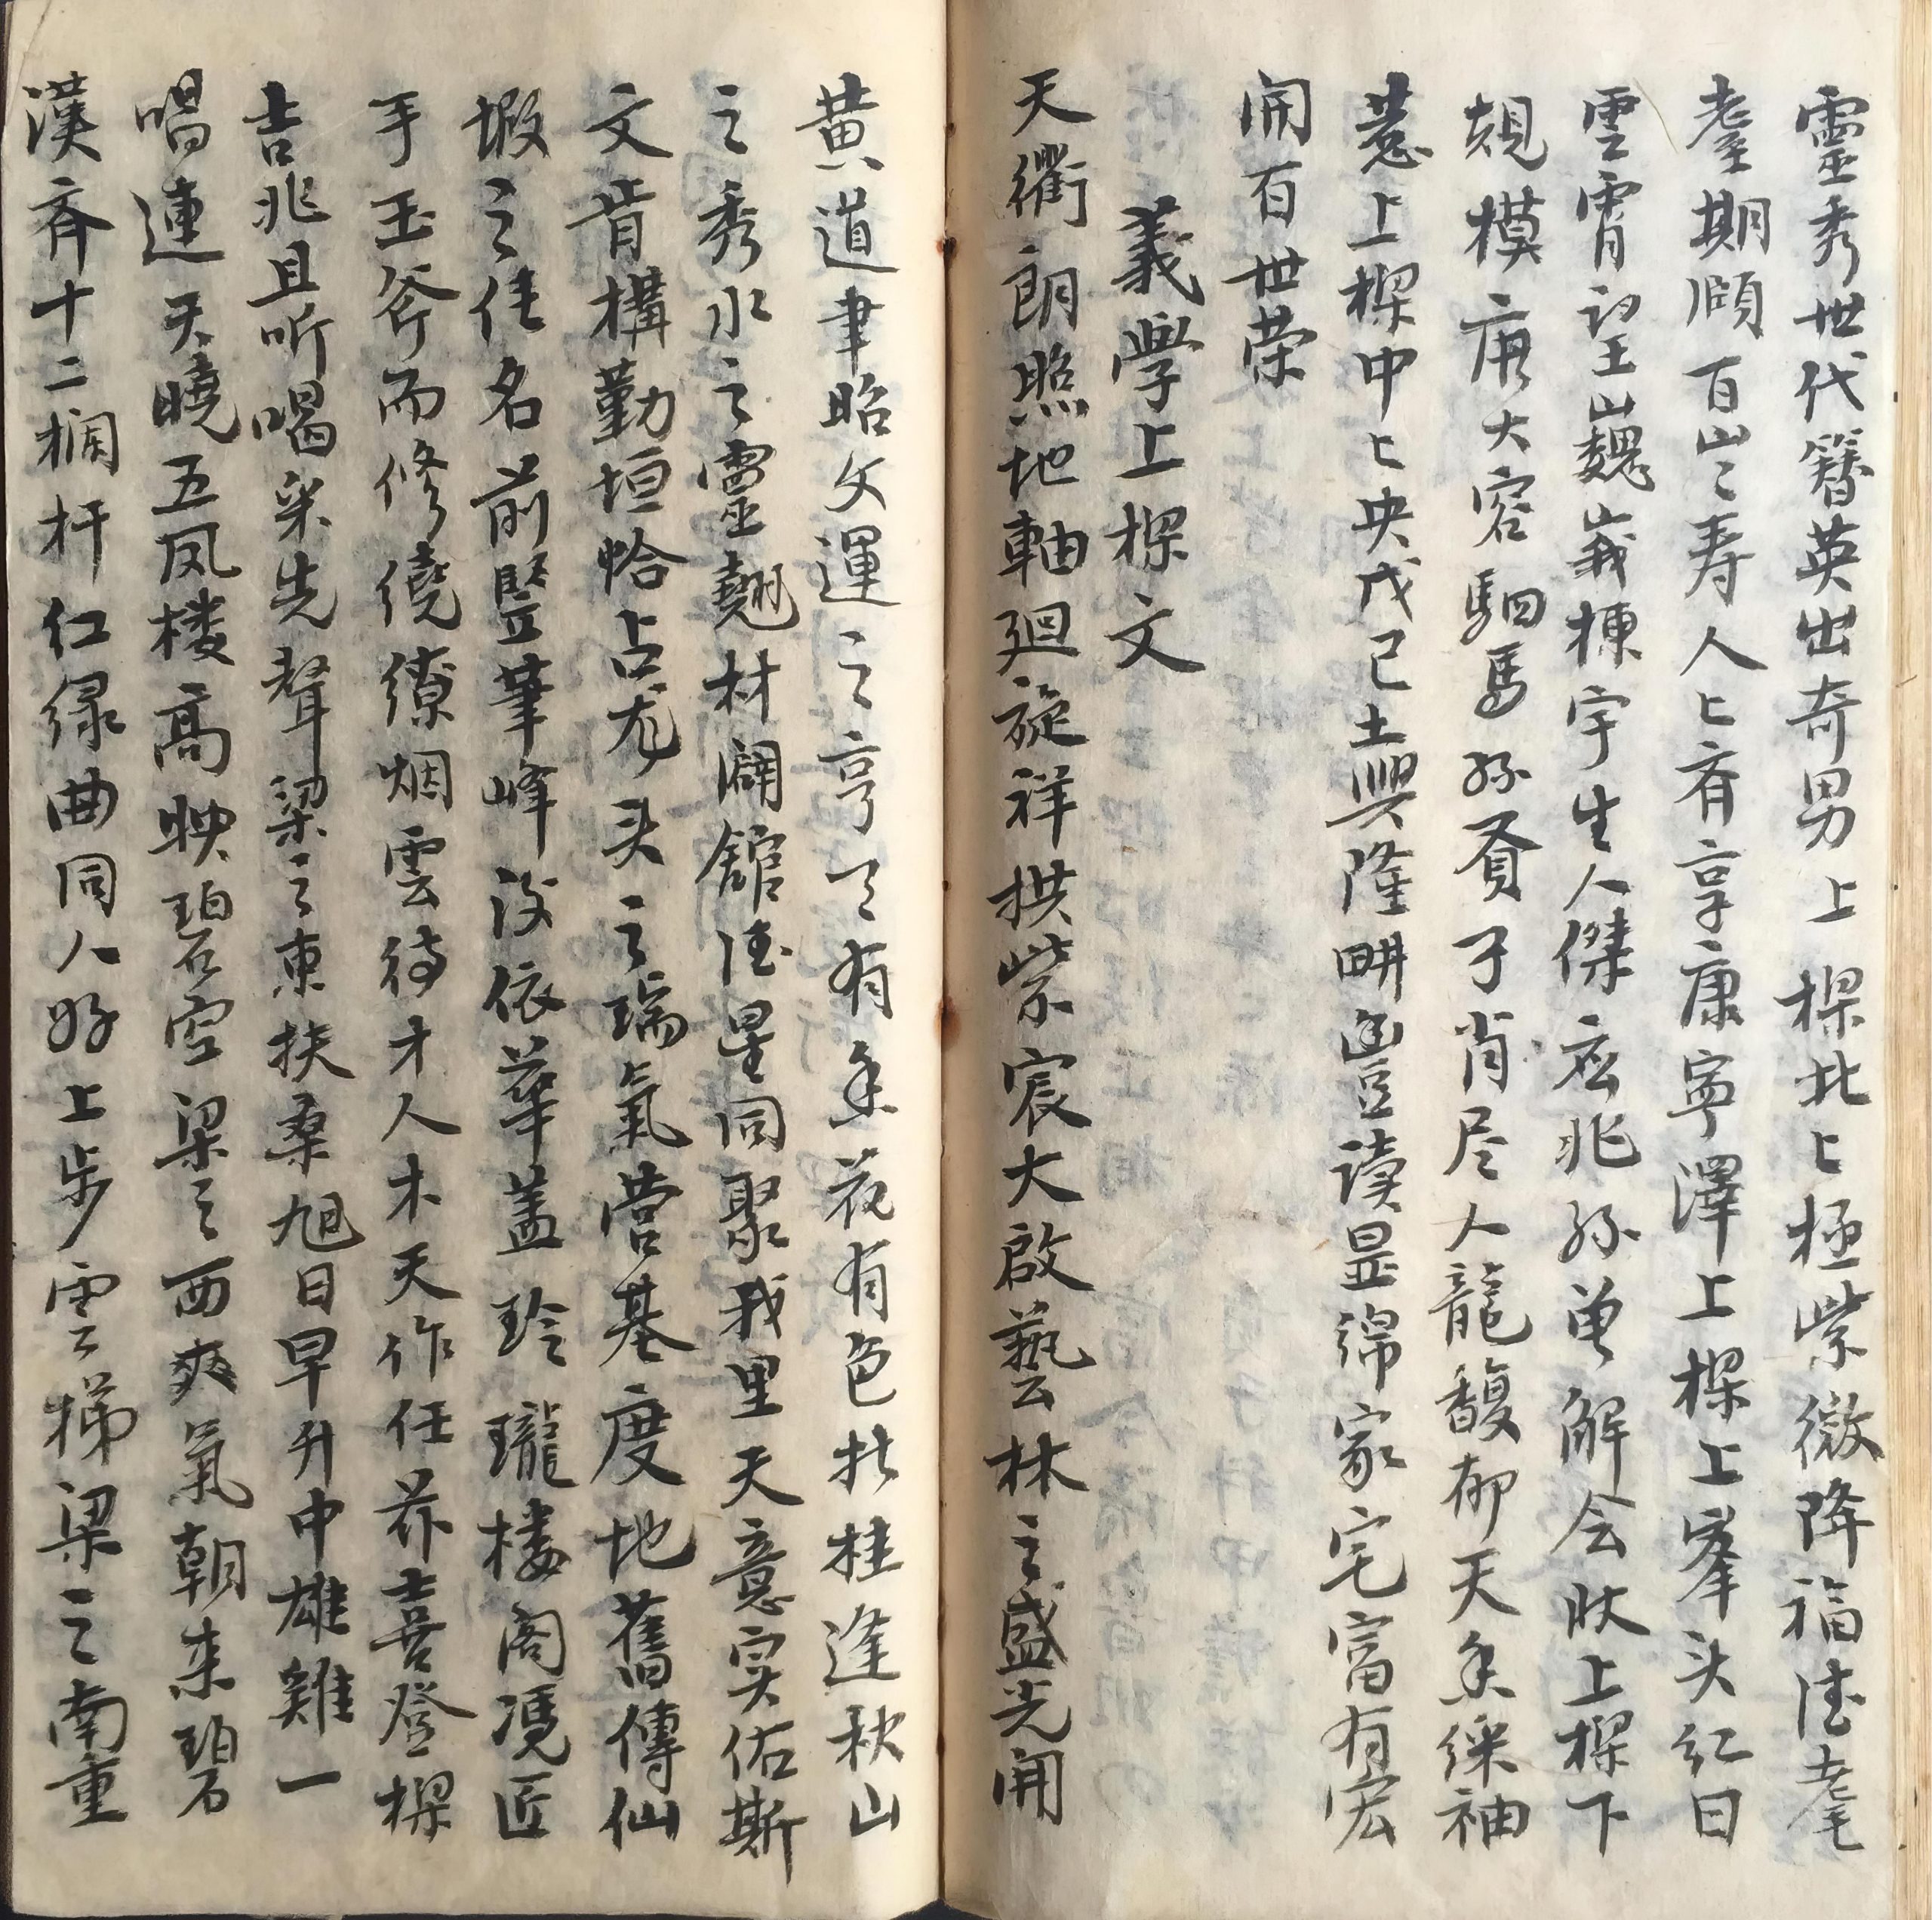 靈秀世代簪英出奇男上樑北匕極紫微降福德耄
耋期頤百山〻寿人匕斉享康寧澤上樑上峯头红日
雲霄望山巍峩棟宇生人傑应兆孙曽解会状上樑下
規模庯大容駟馬孙賁子肖尽人龍馥郁天香綵袖
惹上樑中匕央戊己土興隆畊凿豈读显綿家宅富有宏
開百世荣
義學上樑文
天衢朗照地軸廻旋祥拱紫宸大啟藝林之盛光開
黄道聿昭文運之亨〻有香花有色折桂逢秋山
之秀水之靈翹材闢舘德星同聚我里天意实佑斯
文肯構勤垣恰占尨头之瑞氣营基度地舊傳仙
塅之佳名前豎筆峰後依華盖玲瓏楼阁馮匠
手玉斧而修繞缭烟雲待才人木天作任茶喜登樑
吉兆且听唱采先聲梁之東扶桑旭日早升中雄雞一
唱連天曉五凤楼高映碧空梁之西爽氣朝来碧
漢斉十二欄杆红绿曲同人好上步雲梯梁之南重